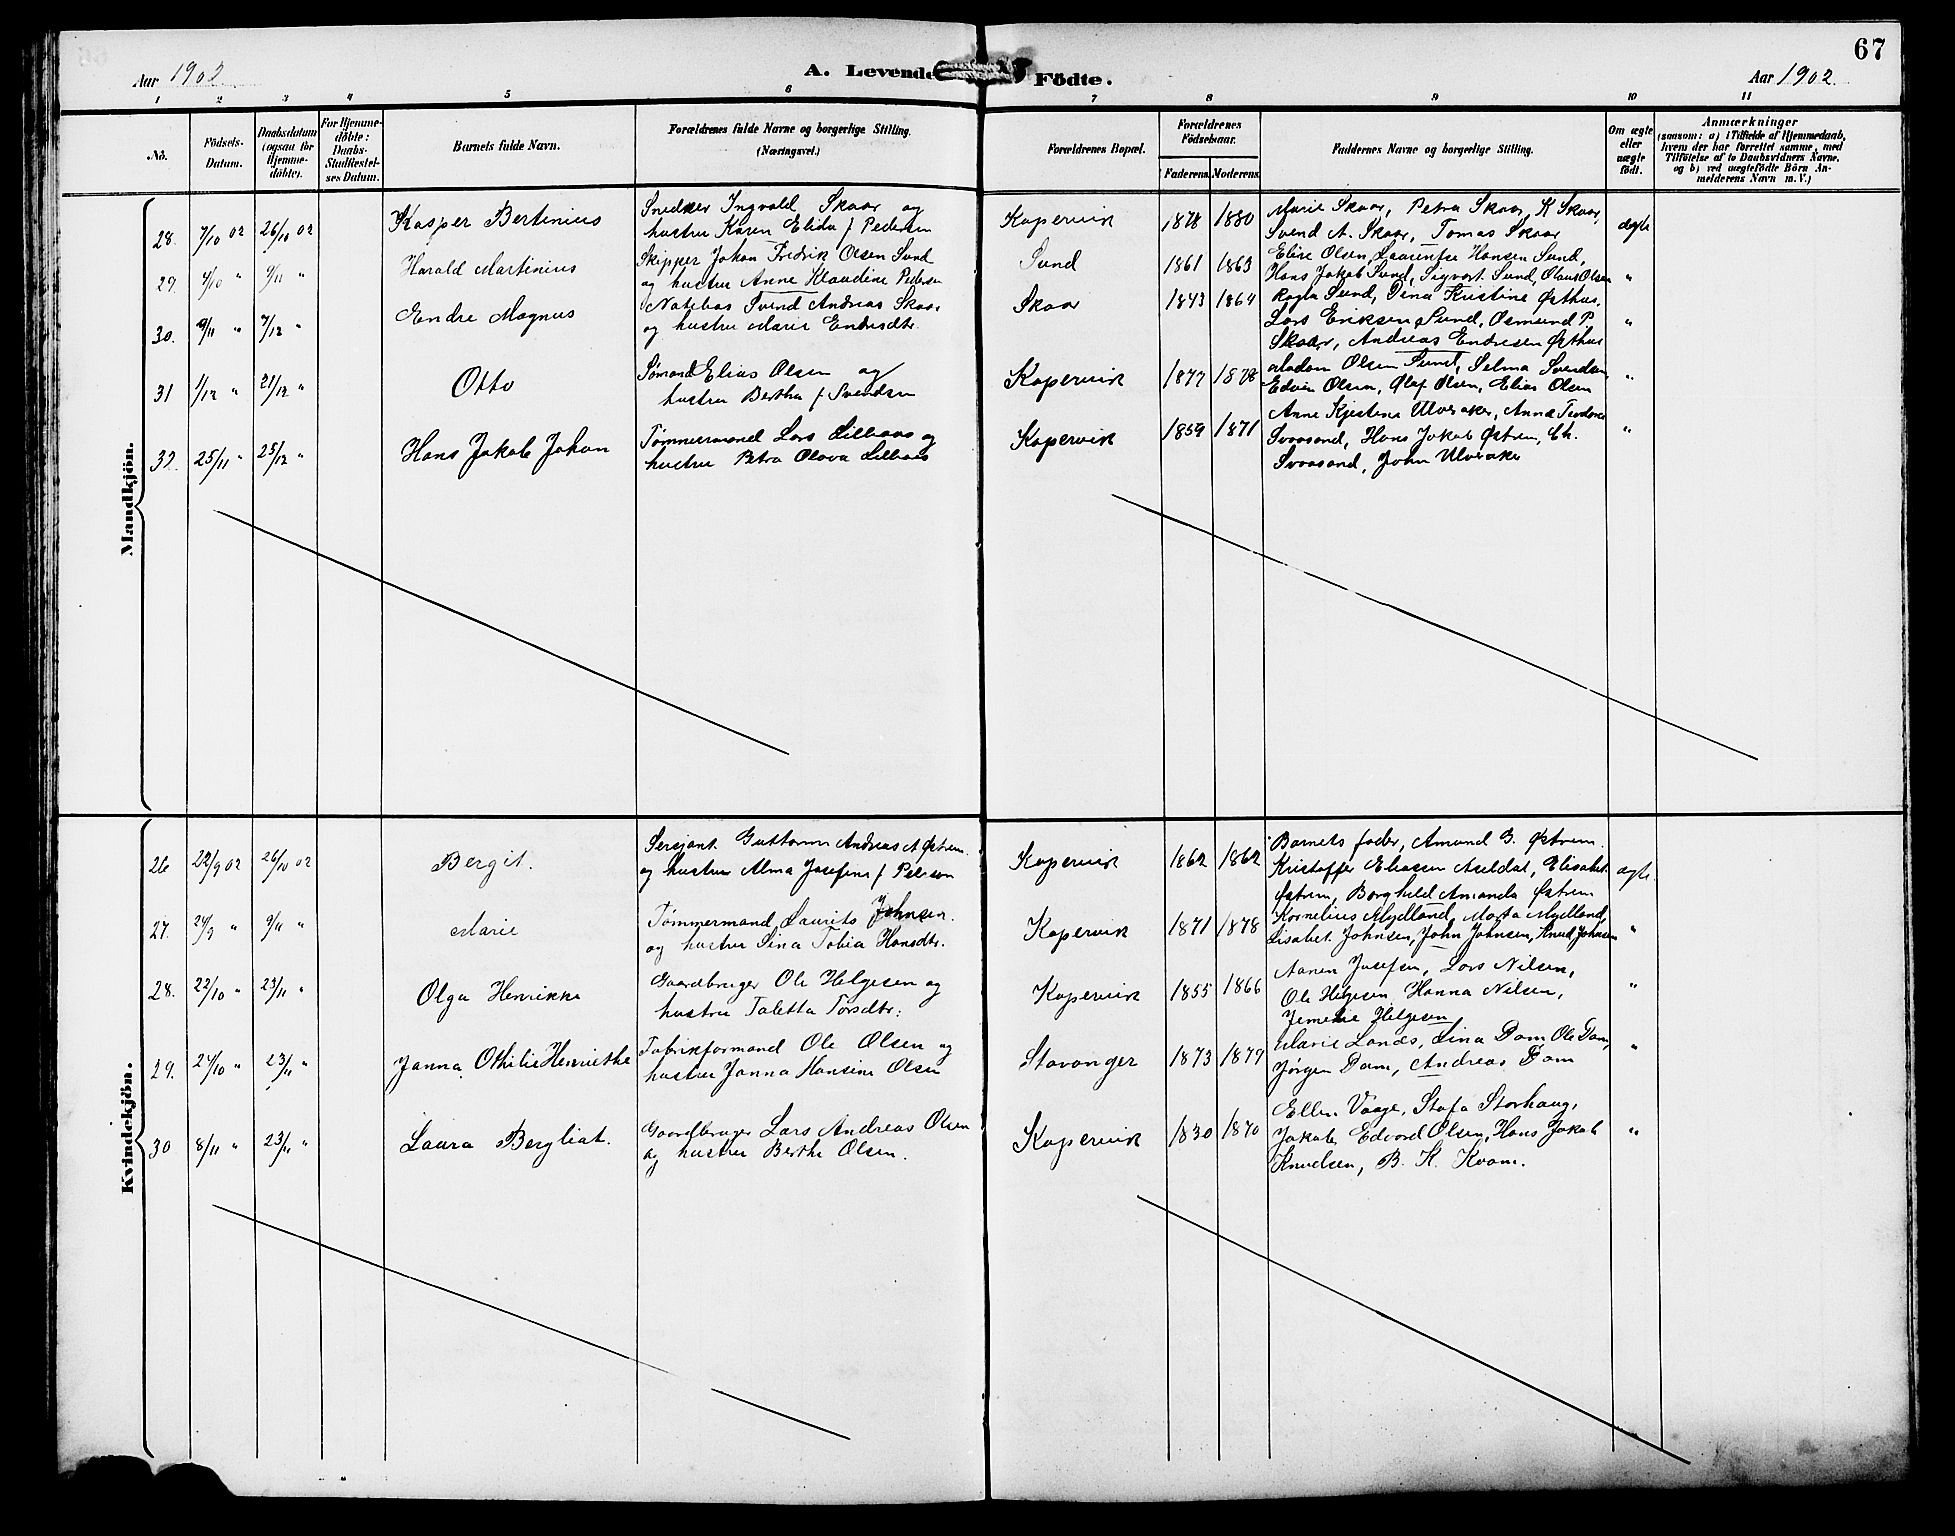 67
Aar 1902
A. Levende Födte.
Aar 1902.
1 2 3 4 5 6 7 8 9 10 11
No.
Födsels-
Datum.
Daabsdatum
(ogsaa for
Hjemme-
döbte).
For Hjemme-
döbte:
Daabs-
Stadfæstel-
ses Datum.
Barnets fulde Navn.
Forældrenes fulde Navne og borgerlige Stilling.
(Næringsvei.)
Forældrenes Bopæl.
Forældrenes
Födselsaar.
Faderens. Moderens.
Faddernes Navne og borgerlige Stilling.
Om ægte
eller
uægte
født.
Anmærkninger
(saasom: a) i Tilfælde af Hjemmedaab,
hvem der har forrettet samme, med
Tilföielse af to Daabsvidners Navne,
og b) ved uægtefödte Börn An-
melderens Navn m. V.)
Mandkjön.
28. 7/10 02 26/10 02 Kasper Bertinius
Snedker Ingvald Skaar og
hustru Karen Elida f Pedersen
Kopervik 1878 1880
Marie Skaar, Petra Skaar, K Skaar,
Svend A. Skaar, Tomas Skaar
ægte
29. 4/10 " 9/11 " Harald Martinius
Skipper Johan Fredrik Olsen Sund
og hustru Anne Klaudine Pedersen
Sund 1861 1863
Elise Olsen, Laurentse Hansen Sund,
Hans Jakob Sund, Sigvart Sund, Olaus Olsen
"
30. 9/11 " 7/12 " Endre Magnus
Notebas Svend Andreas Skaar
og hustru Marie Endresdtr.
Skaar 1843 1864
Ragla Sund, Dina Kristine Østhus,
Lars Eriksen Sund, Osmund P.
Skaar, Andreas Endresen Østhus
"
31 1/12 " 21/12 " Otto
Sømand Elias Olsen og
hustru Bertha f Svendsen
Kopervik 1877 1878
Madam Olsen Sund, Selma Svendsen,
Edvin Olsen, Olaf Olsen, Elias Olsen
"
32. 25/11 " 25/12 " Hans Jakob Johan
Tømmermand Lars Lilleaas og
hustru Petra Olava Lilleaas
Kopervik 1859 1871
Anne Kjestena Ulveraker, Anna Teodora
Svaasand, Hans Jakob Østrem, Ch.
Svaasand, John Ulveraker
"
Kvindekjön.
26 22/9 02 26/10 02 Bergit.
Sersjant Guttorm Andreas A Østrem
og hustru Alma Josefine f Peterson
Kopervik 1862 1862
Barnets fader, Amund G. Østrem
Kristoffer Eliassen Aseldal, Elisabet
Østrem, Borghild Amanda Østrem
ægte.
27. 24/9 " 9/11 " Marie
Tømmermand Laurits Johnsen.
og hustru Sina Tobia Hansdtr.
Kopervik 1871 1878
Kornelius Mydland, Marta Mydland,
Lisabet Johnsen, John Johnsen, Knud Johnsen
"
28. 22/10 " 23/11 " Olga Henrikka
Gaardbruger Ole Helgesen og
hustru Taletta Torsdtr:
Kopervik 1855 1866
Aanen Josefsen, Lars Nilsen,
Ole Helgesen Hanna Nilsen,
Jemelie Helgesen
"
29. 24/10 " 23/11 " Janna Othilie Henriethe
Fabrikformand Ole Olsen og
hustru Janna Hansine Olsen
Stavanger 1873 1879
Marie Lande, Lina Dam Ole Dam,
Jørgen Dam, Andreas Dam
"
30 8/11 " 23/11 " Laura Bergliat.
Gaardbruger Lars Andreas Olsen
og hustru Berthe Olsen.
Kopervik 1830 1870
Ellen Vaage, Stofa Storhaug,
Jakob Edvard Olsen, Hans Jakob
Knudsen, B. K. Kvam.
"